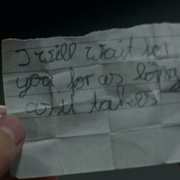 I will wait for
you for as long
as it takes